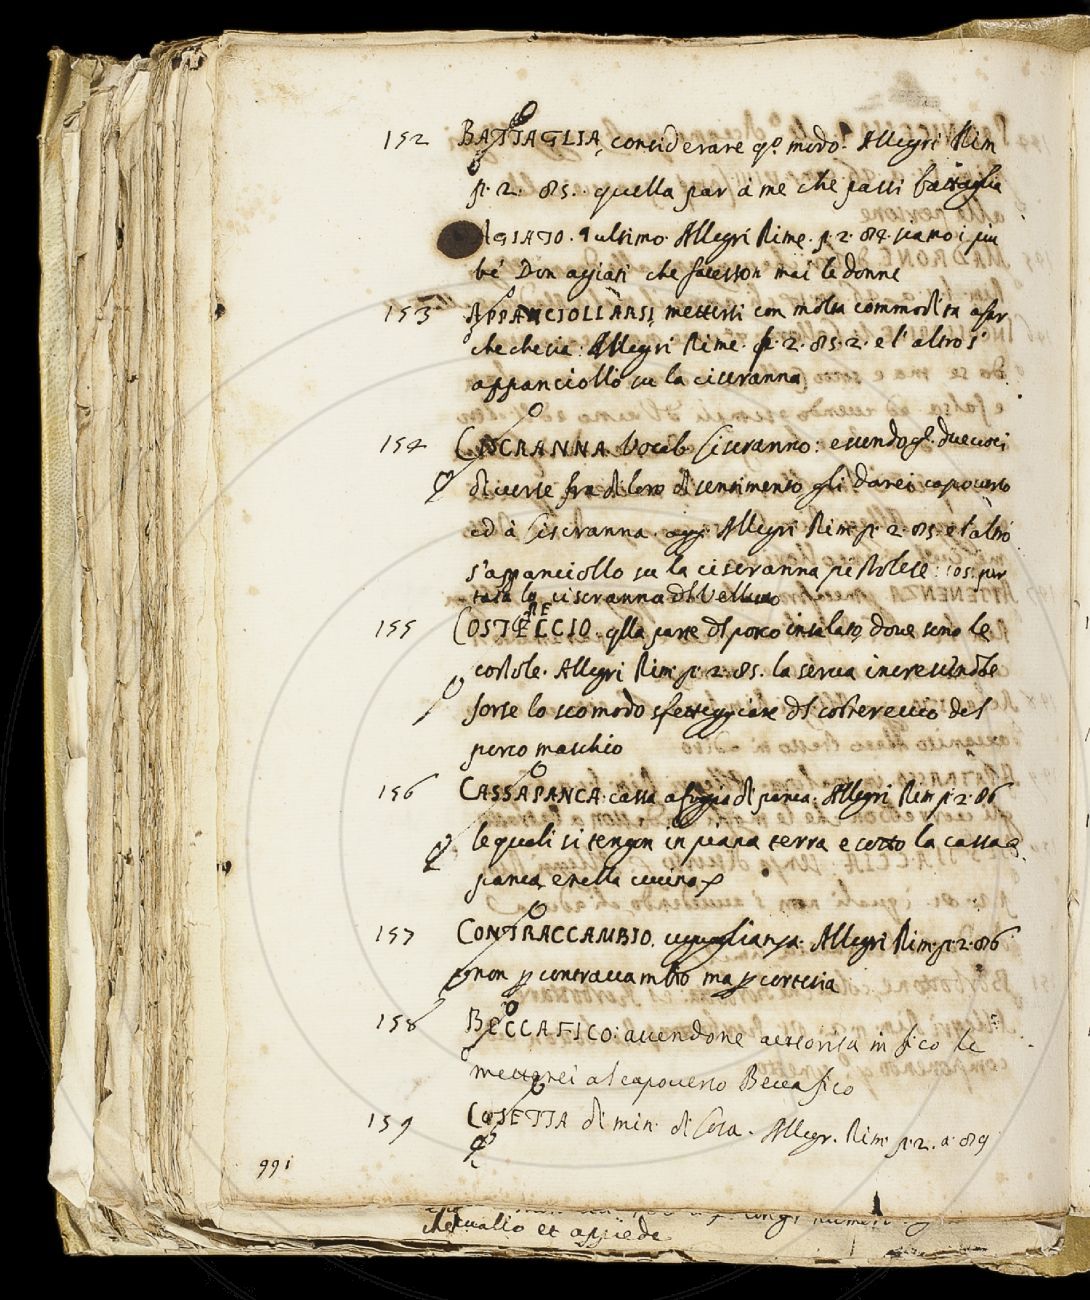 152 BATTAGLIA, considerare qº. modo. Allegri Rim
p. 2. 85. quella par à me che passi battaglia
AGIATO. 9 ultimo. Allegri Rime. p. 2. 84. siamo i più
bé Don agiati che facesson mai le donne
153 APPANCIOLLARSI, mettersi con molta commodità a far
che chesia. Allegri Rime. p. 2. 85. 2. e l'altro s'
appanciollò su la ciscranna
154 CISCRANNA. Vocab. Ciscranno: essendo gl. due voci
diverse fra di loro di sentimento gli darei capoverso
ed à Ciscranna. Allegri Rim. p. 2. 85. e l'altro
s'appanciollò su la ciscranna pistolese: 105. por
tata la ciscranna dl Velluto
155 COSTERECCIO. qlla parte dl porco insalato, dove sono le
costole. Allegri Rim. p. 2. 85. la serva increscendole
forse lo scomodo sfetteggiare dl costereccio del
porco maschio
156 CASSAPANCA. cassa a foggia di panca. Allegri Rim. p. 2. 86
le quali si tengon in piana terra e certo la cassa
panca e nella cucina
157 CONTRACCAMBIO. uguaglianza. Allegri Rim. p. 2. 86
non p contraccambio ma p cortesia
158 BECCAFICO. avendone autorità in fico le
metterei al capoverso Beccafico
159 COSETTA di min. di Cosa. Allegr. Rim. p. 2. a 89
991
chevalio et appiede